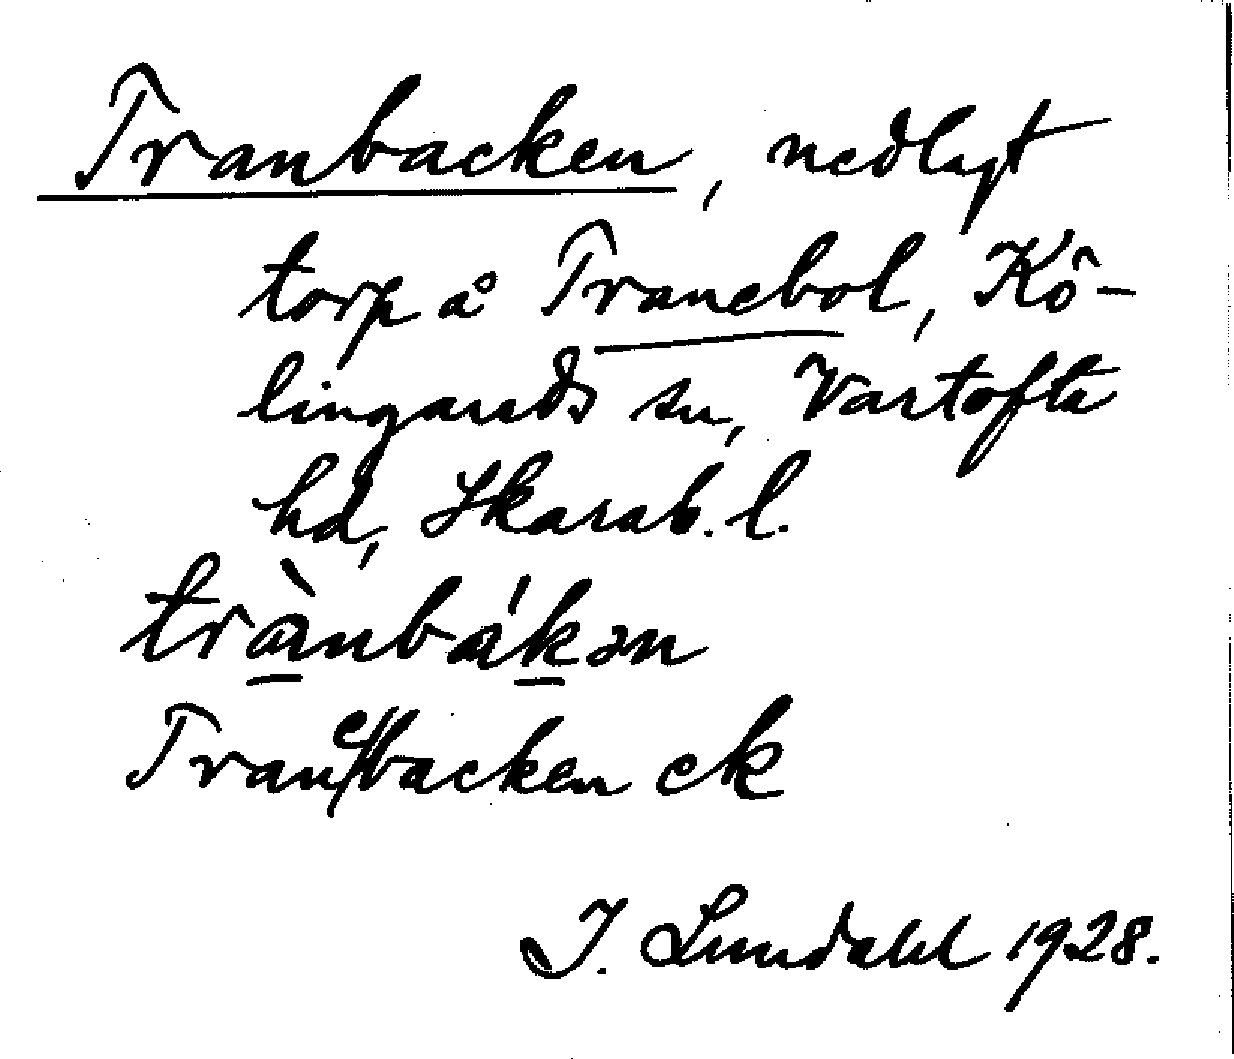 Tranbacken, nedlagt
torp å Tranebol, Kö-
lingareds sn, Vartofta
hd, Skarab. l.
trànbákən
Tranebacken ek
I. Lundahl 1928.